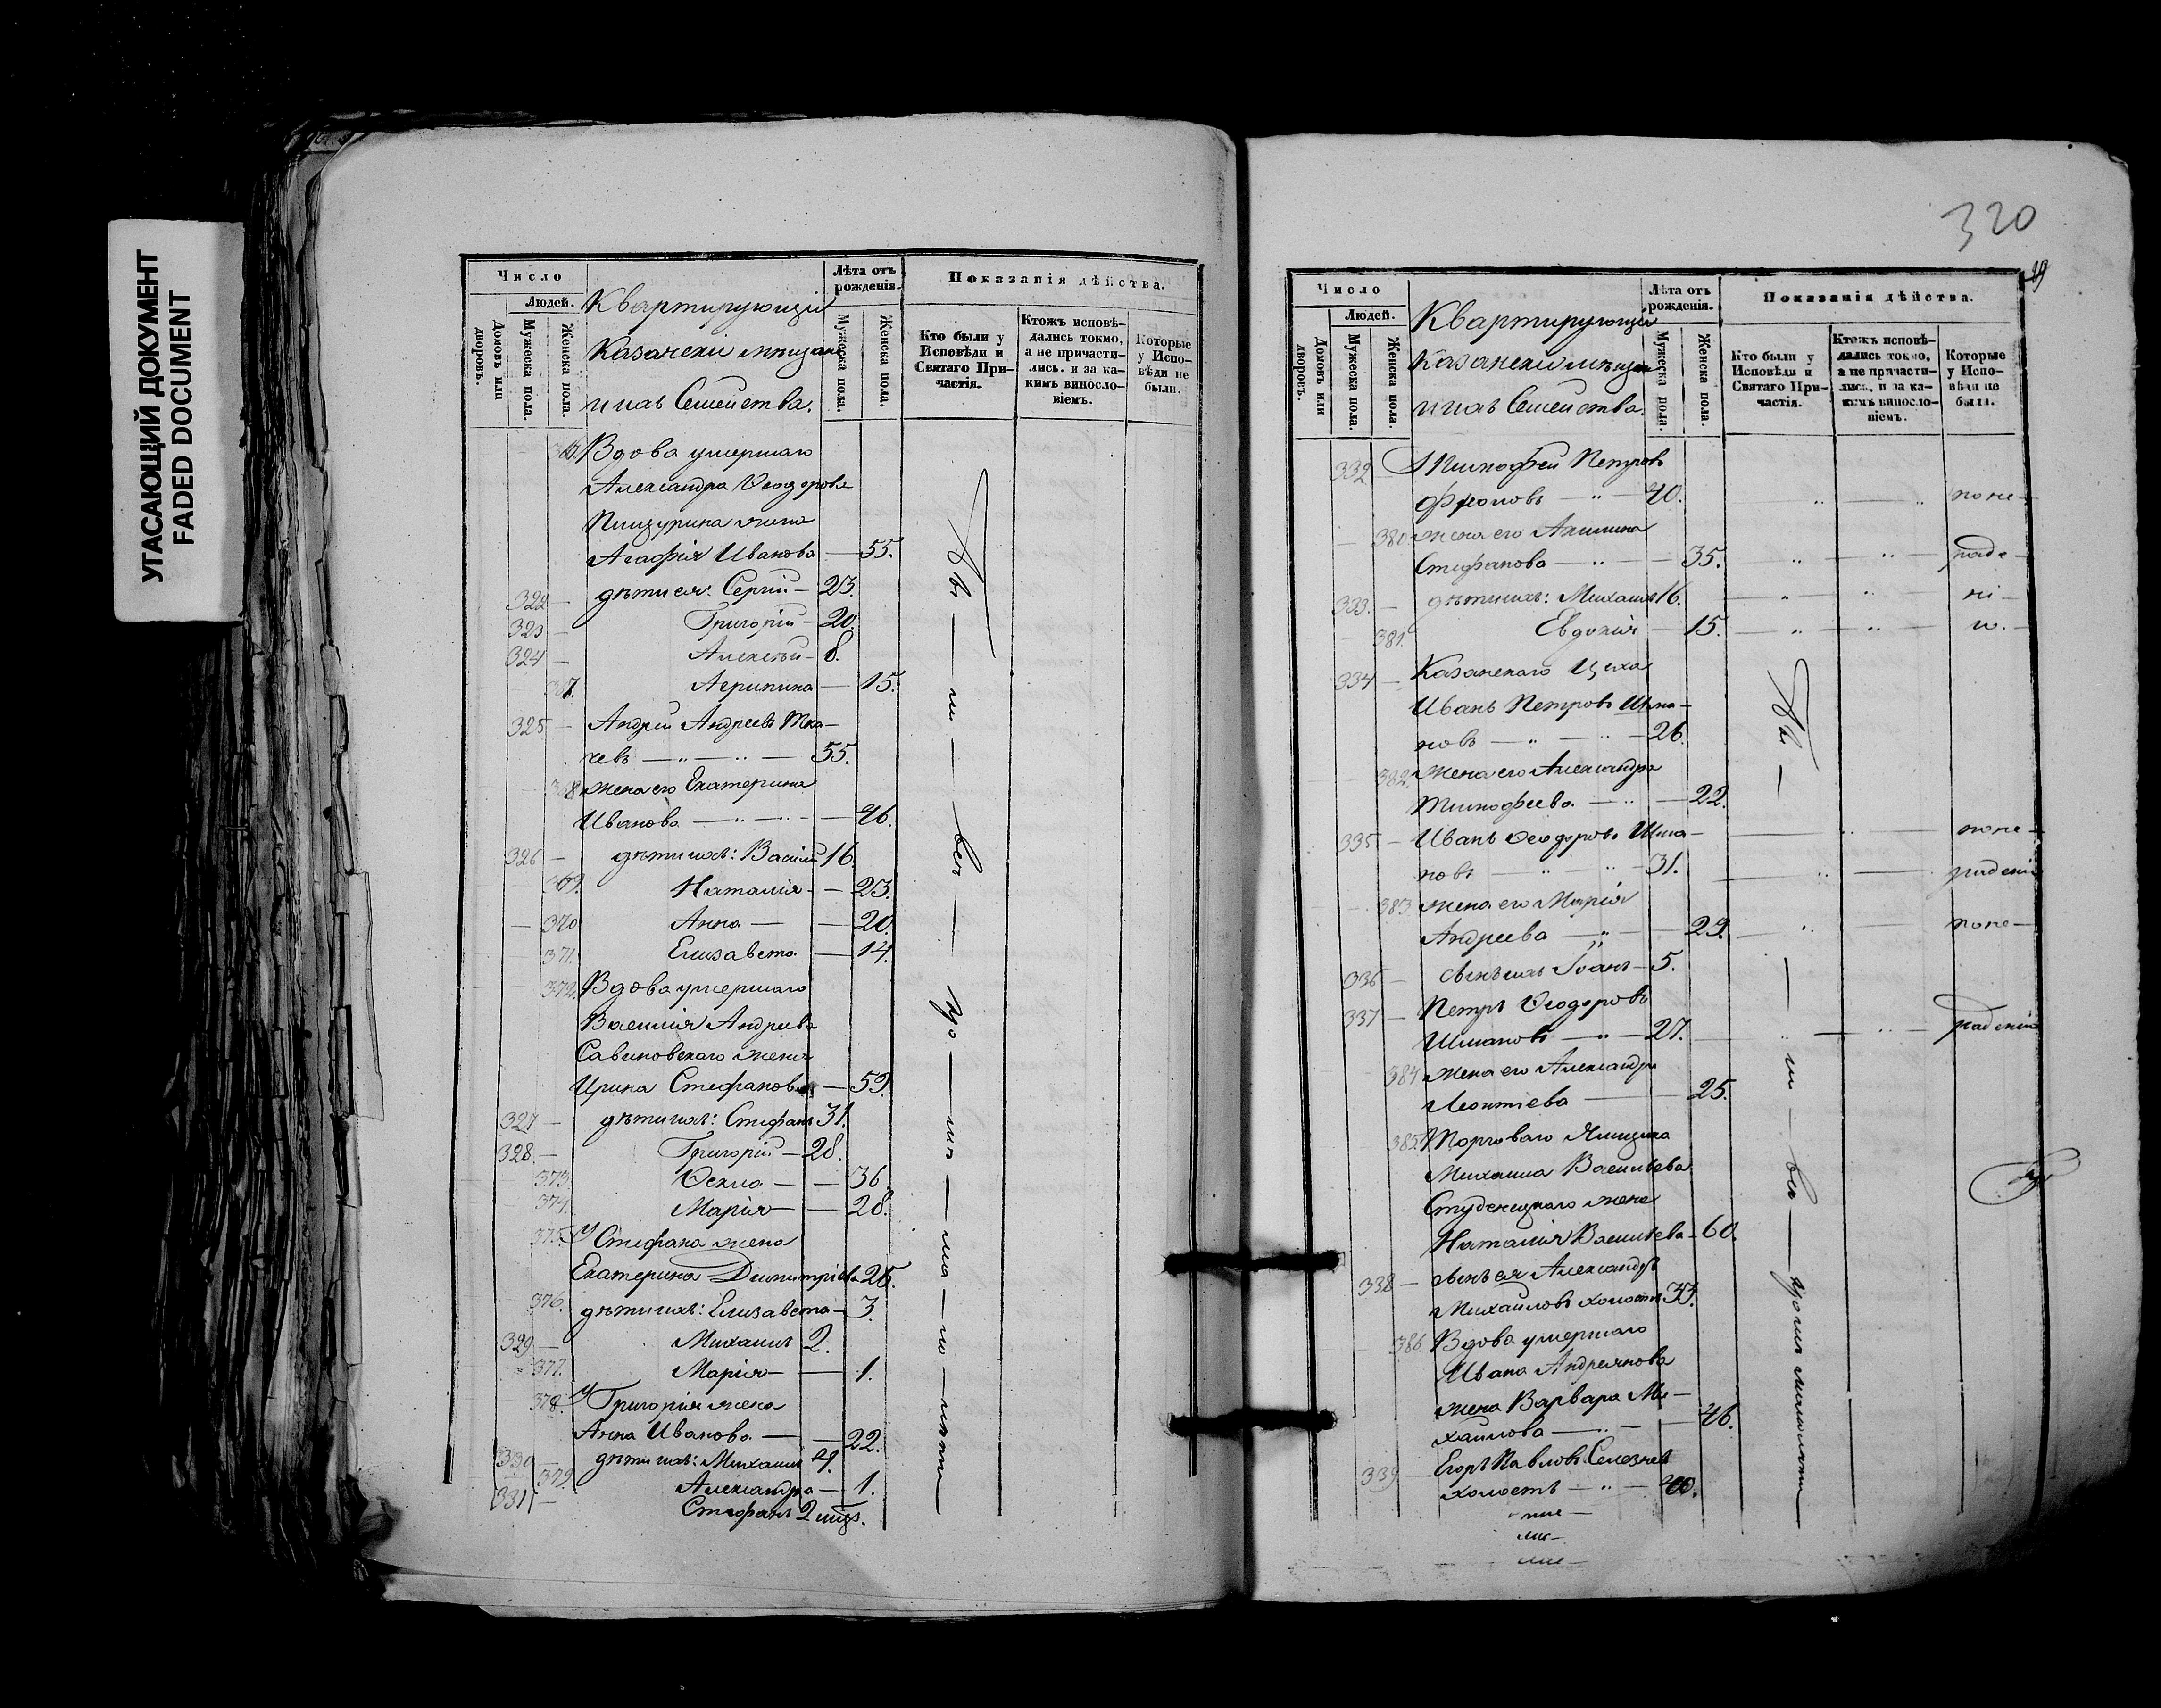 УГАСАЮЩИЙ ДОКУМЕНТ
FADED DOCUMENT
Число
Людей.
Домовъ или дворовъ.
Мужеска пола.
Женска пола.
Квартирующіи
Казанскіи мѣщане
и ихъ Семейства.
Лѣта отъ рожденія.
Мужеска пола.
Женска пола.
Показанія дѣйства.
Кто были у Исповѣди и Святаго Причастія.
Ктожъ исповѣдались токмо, а не причастились. и за какимъ винословіемъ.
Которые у Исповѣди не были.
Вдова умершаго
Александра Ѳеодорова
жена
Агафія Иванова — 55.
322 — дѣти ея: Сергій — 23.
323 — Григорій — 20.
324 — Алексѣй — 8.
367. Агрипина — 15.
325 — Андрей Андреевъ Тка-
чевъ — 〃 — 〃 — 55.
368 жена его Екатерина
Иванова — 〃 — 〃 — 46.
326 — дѣти ихъ: Василій 16.
369. Наталія — — 23.
— 370 Анна — — 20.
371. Елисавета — 14.
372. Вдова умершаго
Василія Андреева
Савиновскаго жена
Ирина Стефанова — 59.
327 — дѣти ихъ: Стефанъ 31.
328 — Григорій — 28.
373. Ѳекла — — 36
374. Марія — — 28.
375. У Стефана жена
Екатерина Димитріева 26.
376. дѣти ихъ: Елисавета — 3.
329 — Михаилъ 2.
377. Марія — — 1.
378. У Григорія жена
Анна Иванова — — 22.
330 — дѣти ихъ: Михаилъ 4.
379. Александра — 1.
331 — Стефанъ 2
320
Число
Людей.
Домовъ или дворовъ.
Мужеска пола.
Женска пола.
Квартирующіи
Казанскіи мѣщане
и ихъ Семейства.
Лѣта отъ рожденія.
Мужеска пола.
Женска пола.
Показанія дѣйства.
Кто были у Исповѣди и Святаго Причастія.
Ктожъ исповѣдались токмо, а не причастились, и за какимъ винословіемъ.
Которые у Исповѣди не были.
332 — Тимофей Петровъ
Фроловъ — 〃 — 40. 〃 — 〃 по не-
380 жена его Акилина
Стефанова — 〃 — — 35. 〃 — 〃 — раде-
333. — дѣти ихъ: Михаилъ 16. — 〃 — ні-
381. Евдокія — 15. — 〃 — 〃 — ю.
334 — Казанскаго Цеха
Иванъ Петровъ Шма-
новъ — 〃 — 〃 — 26.
382. жена его Александра
Тимофеева — 〃 — 22.
335 — Иванъ Ѳеодоровъ Шма- — 〃 — по не-
новъ — 〃 — 〃 — 31. — 〃 — радѣнію
383. жена его Марія
Андреева — 〃 — — 29. — 〃 — по не-
336 — сынъ ихъ Іоанъ — 5.
337 — Петръ Ѳеодоровъ
Шмановъ — 〃 — 27. 〃 — 〃 — радѣнію
384 жена его Александра
Леонтіева — — 25.
385 Торговаго
Михаила Васильева
Студенецкаго жена
Наталія Васильева — 60.
338 — сынъ ея Александръ
Михайловъ холостъ 33.
386. Вдова умершаго
Ивана Андреянова
жена Варвара Ми-
хайлова — 〃 — — 46.
339 — Егоръ Павловъ Селезневъ
холостъ — 〃 — 40.